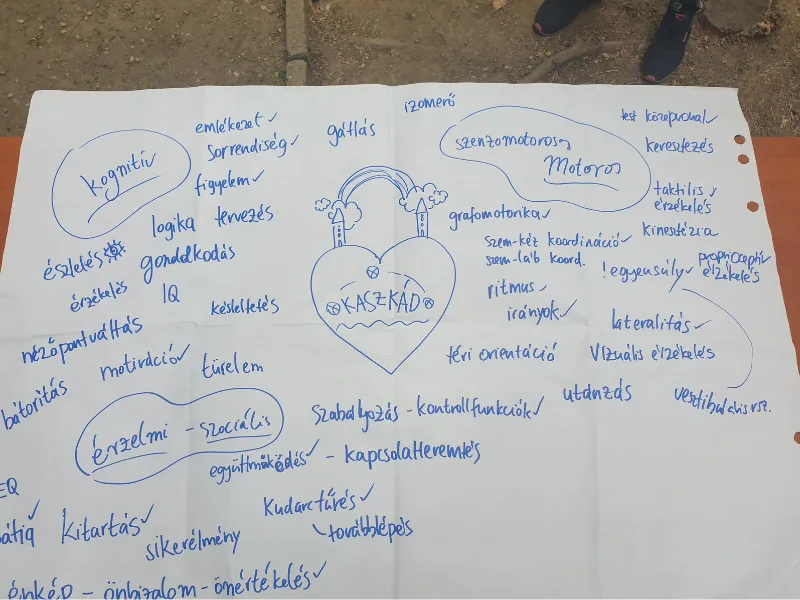 izomerő
emlékezet
sorrendiség
gátlás
figyelem
kognitív
logika tervezés
észlelés gondolkodás
érzékelés IQ késleltetés
nézőpontváltás
motiváció türelem
bátorítás
KASZKÁD
szenzomotoros
Motoros
test középvonal
keresztezés
taktilis
érzékelés
grafomotorika
kinesztézia
szem-kéz koordináció
szem-láb koord.
!egyensúly
proprioceptív
érzékelés
ritmus
irányok
lateralitás
téri orientáció
Vizuális érzékelés
utánzás
vestibularis rsz.
érzelmi - szociális
Szabályozás - kontrollfunkciók
együttműködés - kapcsolatteremtés
EQ
kitartás
Kudarctűrés
továbblépés
sikerélmény
énkép - önbizalom - önértékelés